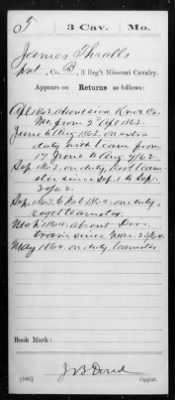 T 3 Cav. Mo.
James Thralls
Pvt., Co. B, 3 Reg't Missouri Cavalry.
Appears on
Returns as follows:
Apl 1862, absent sick Knox Co.
Mo. from 2 Apl 1862.
June to Aug 1862, on extra
duty with team from
17 June to Aug 7/62.
Sep. 1862, on duty,
since Sep. 1 to Sep.
30/62.
Sep. 1863 to Feb 1864, on duty,
regtl teamster.
Mch 1864, absent
since Mar.
May 1864, on duty, teamster
Book Mark:
(546)
Copyist.